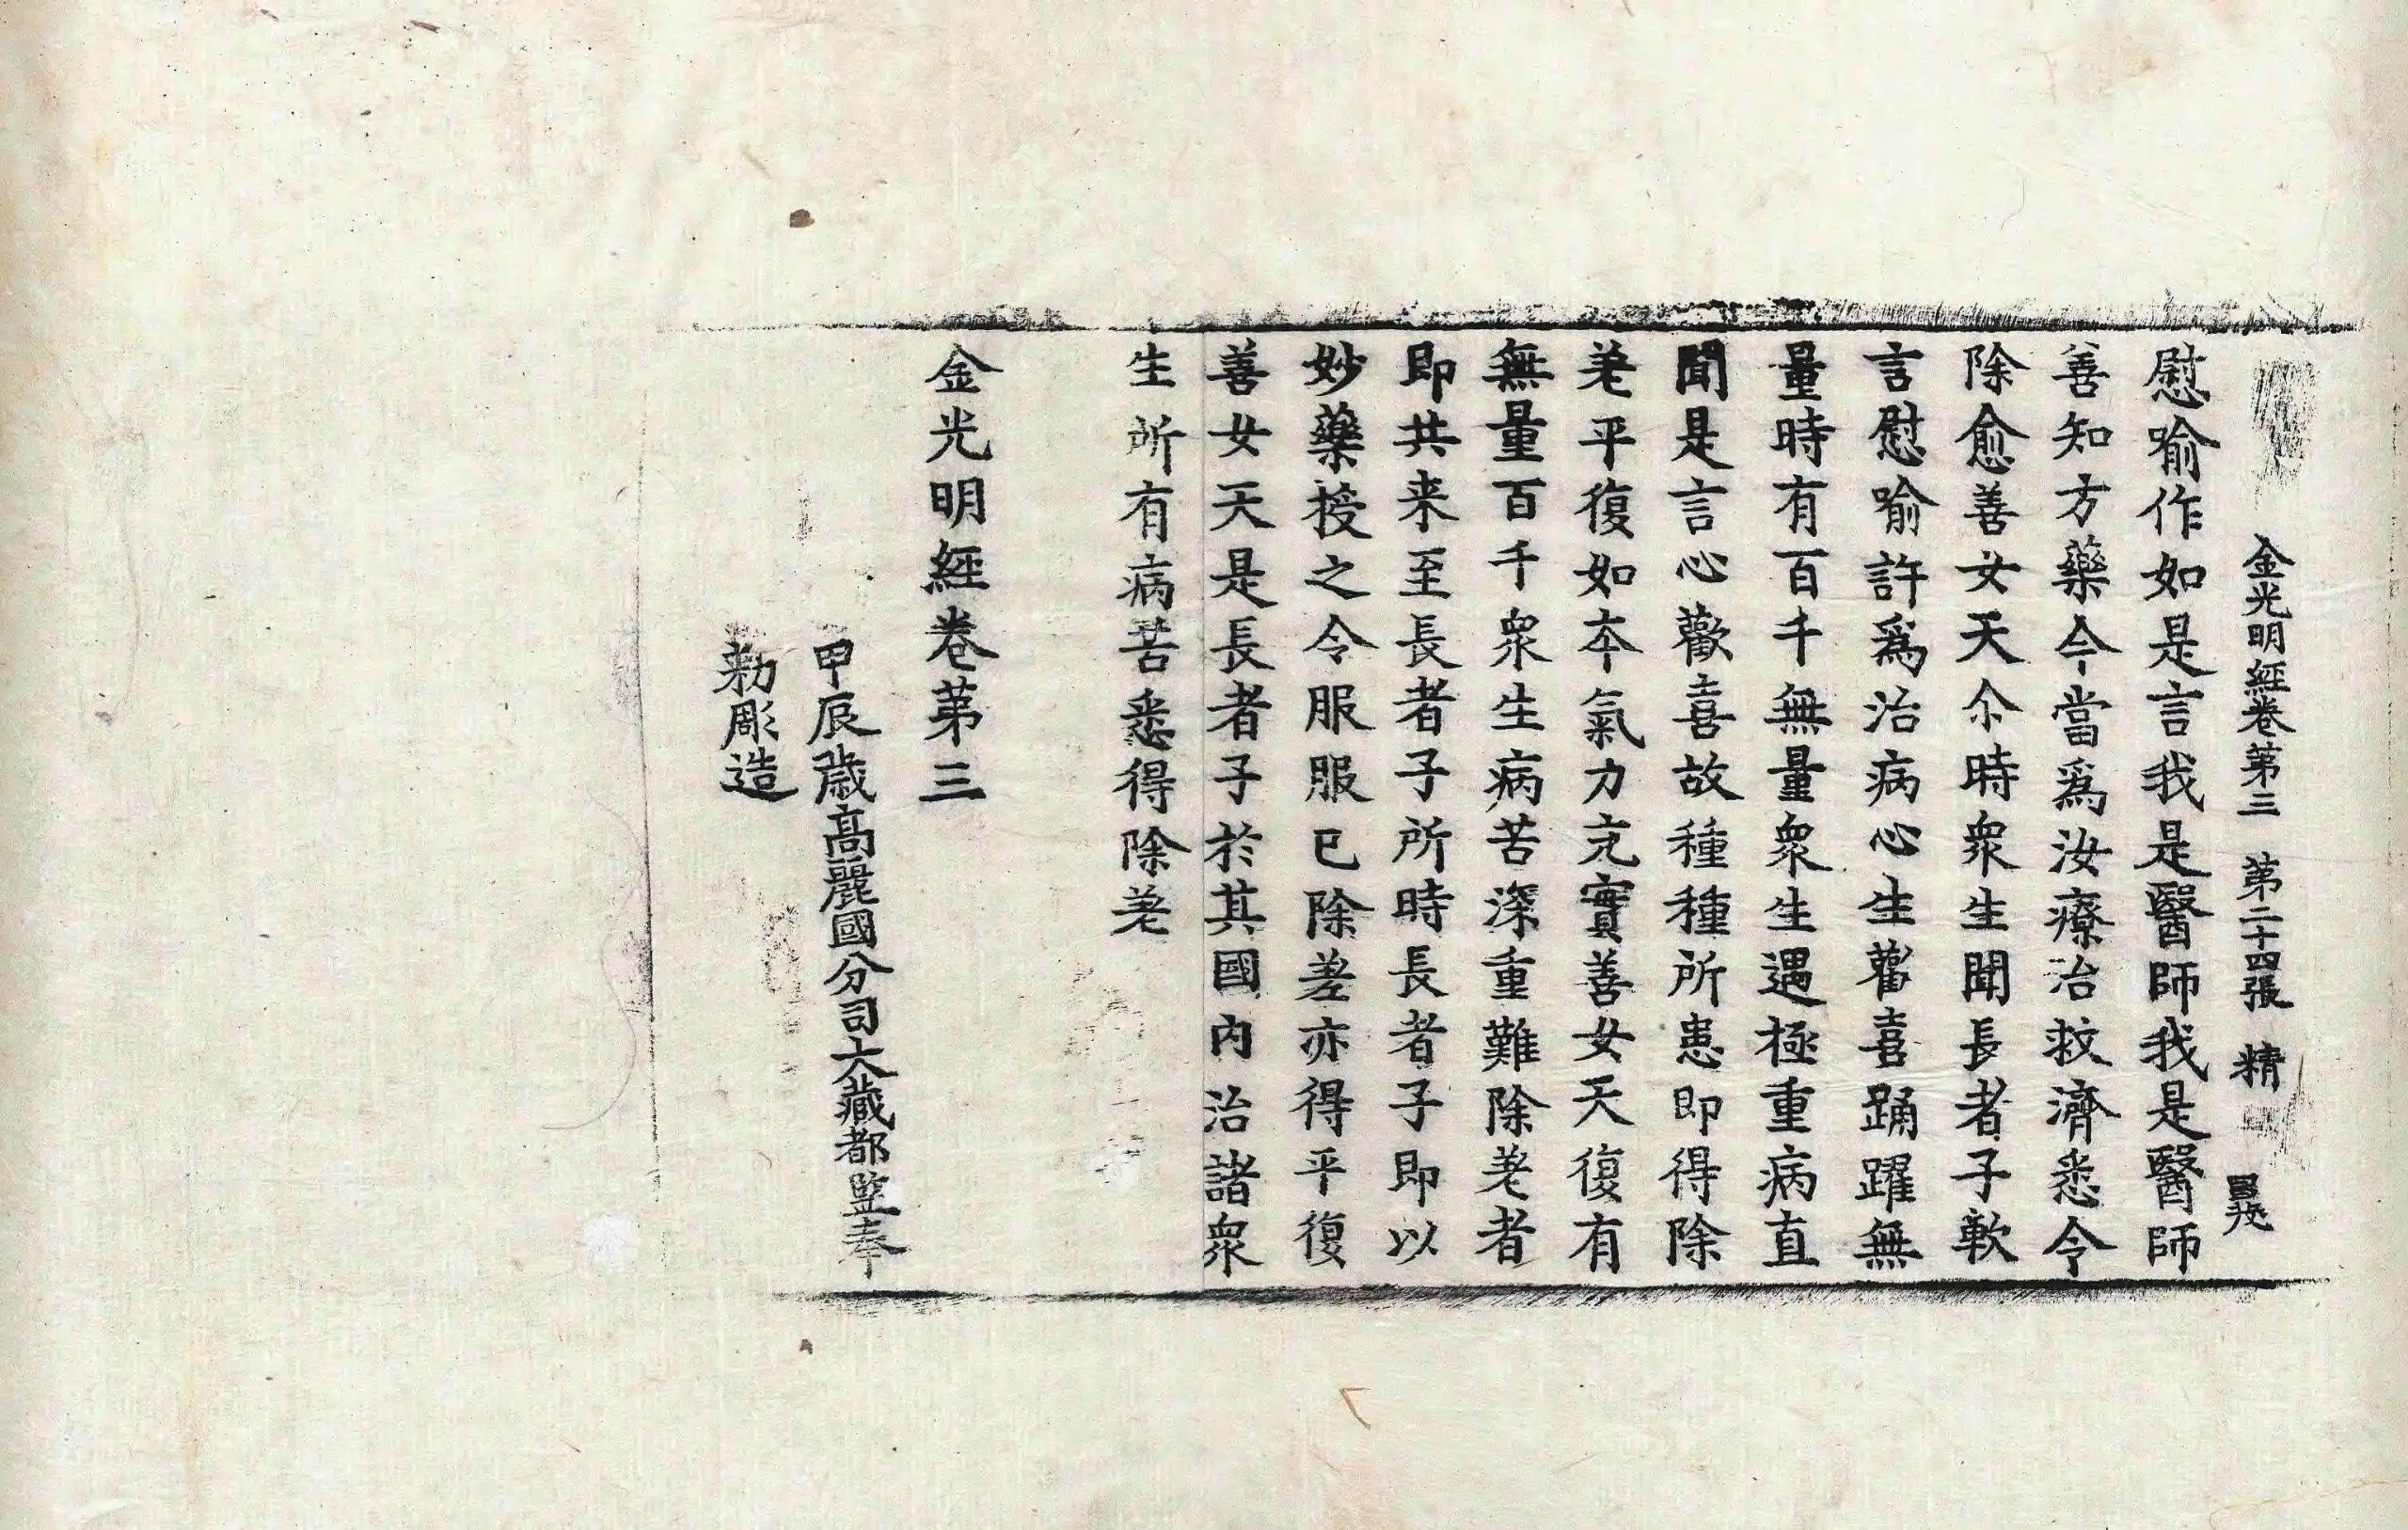 金光明經卷第三 第二十四張 精
慰喻作如是言我是醫師我是醫師
善知方藥今當爲汝療治救濟悉令
除愈善女天尒時衆生聞長者子軟
言慰喻許爲治病心生歡喜踊躍無
量時有百千無量衆生遇極重病直
聞是言心歡喜故種種所患即得除
差平復如本氣力充實善女天復有
無量百千衆生病苦深重難除差者
即共来至長者子所時長者子即以
妙藥授之令服服已除差亦得平復
善女天是長者子於其國內治諸衆
生所有病苦悉得除差
金光明經卷第三
甲辰歲高麗國分司大藏都監奉
勅彫造